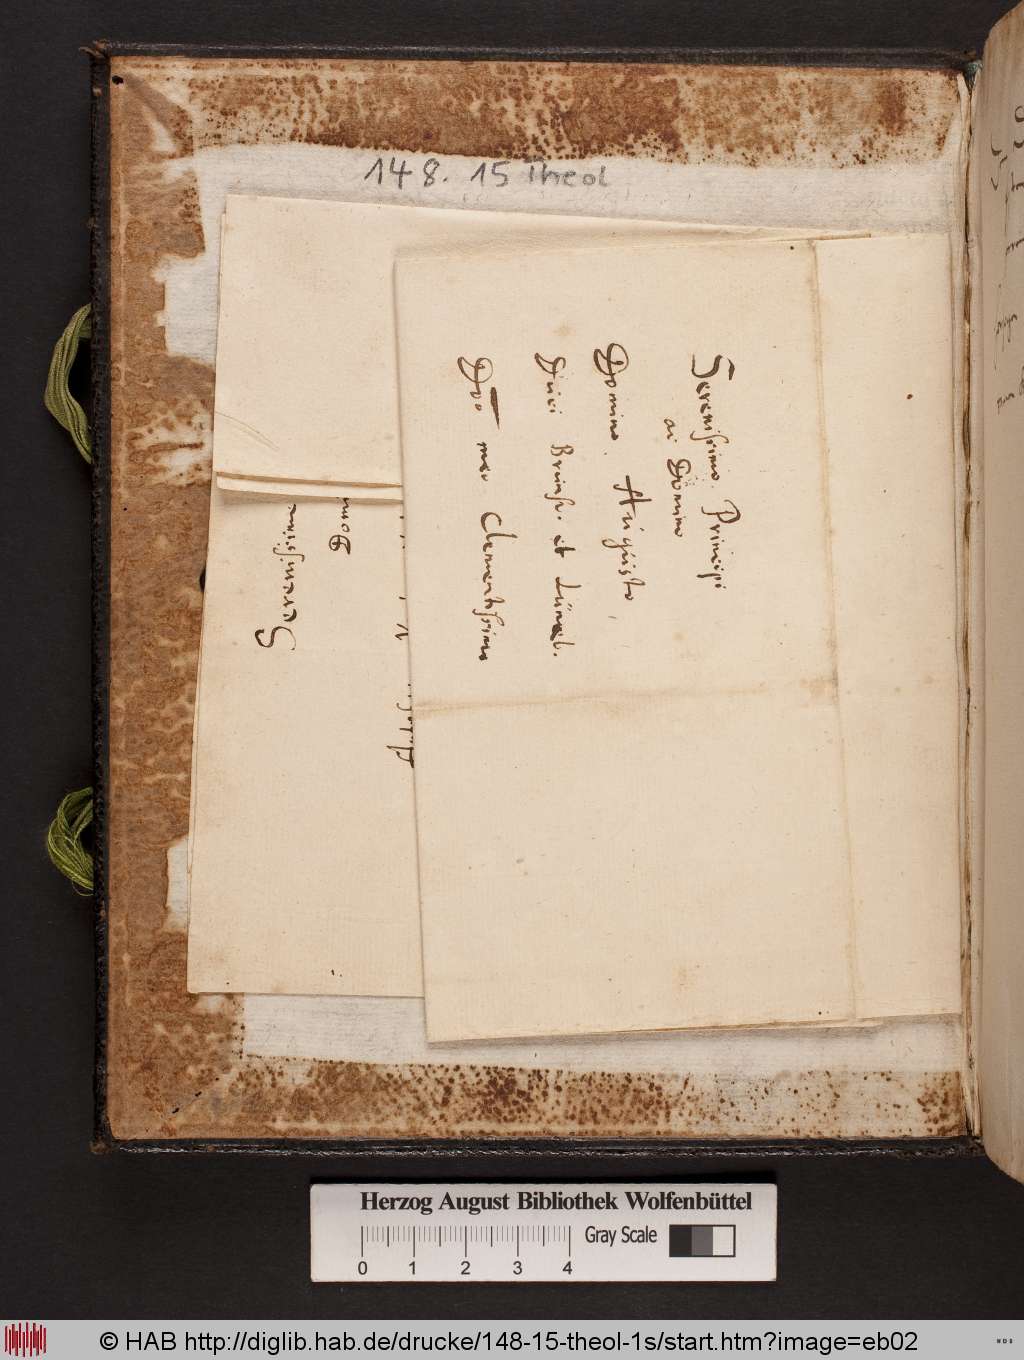 148. 15 Theol
Serenissimo Principi
ac Domino
Domino. Augusto
Duci Brunsv. et Lünæb.
Dno meo Clementissimo
Serenissim
Dom
Herzog August Bibliothek Wolfenbüttel
Gray Scale
0 1 2 3 4
© HAB http://diglib.hab.de/drucke/148-15-theol-1s/start.htm?image=eb02